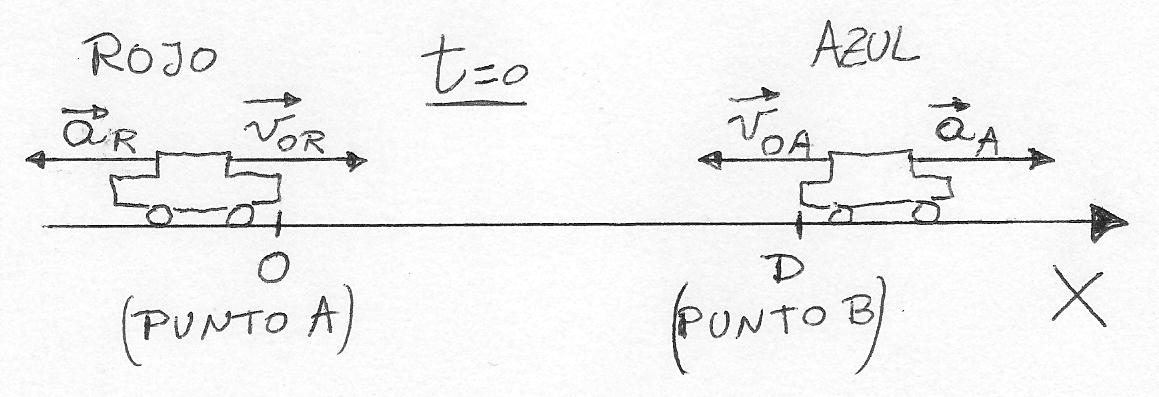 ROJO
t=0
AZUL
a⃗R
v⃗0R
v⃗0A
a⃗A
O
D
X
(PUNTO A)
(PUNTO B)